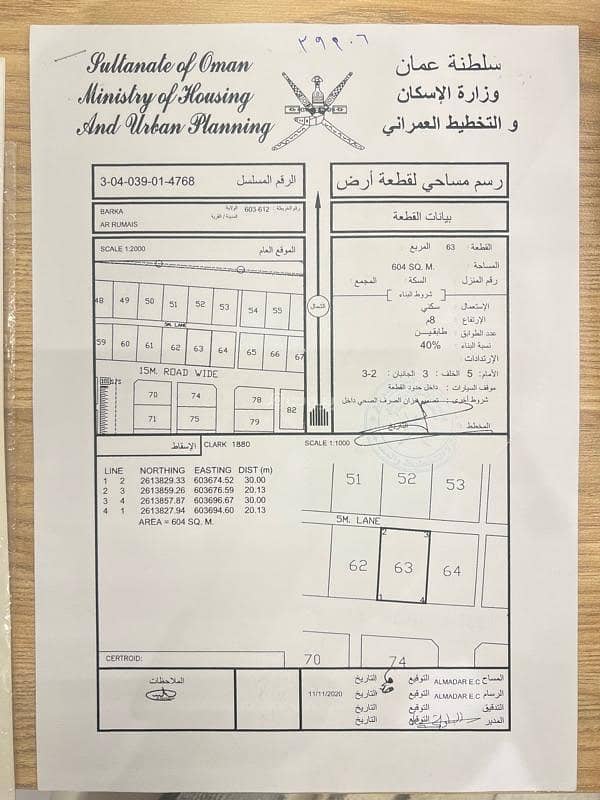 ٣٩٩٠٦
Sultanate of Oman
Ministry of Housing
And Urban Planning
سلطنة عمان
وزارة الإسكان
و التخطيط العمراني
3-04-039-01-4768 الرقم المسلسل
رسم مساحي لقطعة أرض
BARKA
AR RUMAIS
رقم الخريطة: 603-612 الولاية
المدينة / القرية
بيانات القطعة
SCALE 1:2000 الموقع العام
48 49 50 51 52 53 54 55
5M. LANE
59 60 61 62 63 64 65 66 67
15M. ROAD WIDE
70 74 78
71 75 79 82
الشمال
القطعة: 63 المربع
المساحة: 604 SQ. M.
رقم المنزل: السكة: المجمع:
شروط البناء
الإستعمال: سكني
الإرتفاع: 8م
عدد الطوابق: طابقين
نسبة البناء: 40%
الإرتدادات:
الأمام: 5 الخلف: 3 الجانبان: 2-3
موقف السيارات: داخل حدود القطعة
شروط أخرى: تصميم خزان الصرف الصحي داخل
المخطط التاريخ
الإسقاط CLARK 1880
SCALE 1:1000
LINE NORTHING EASTING DIST (m)
1 2 2613829.33 603674.52 30.00
2 3 2613859.26 603676.59 20.13
3 4 2613857.87 603696.67 30.00
4 1 2613827.94 603694.60 20.13
AREA = 604 SQ. M.
51 52 53
5M. LANE
2 3
62 63 64
1 4
70 74
CERTROID:
الملاحظات
المساح ALMADAR E.C التوقيع التاريخ
الرسام ALMADAR E.C التوقيع التاريخ 11/11/2020
التدقيق التوقيع التاريخ
المدير التوقيع التاريخ